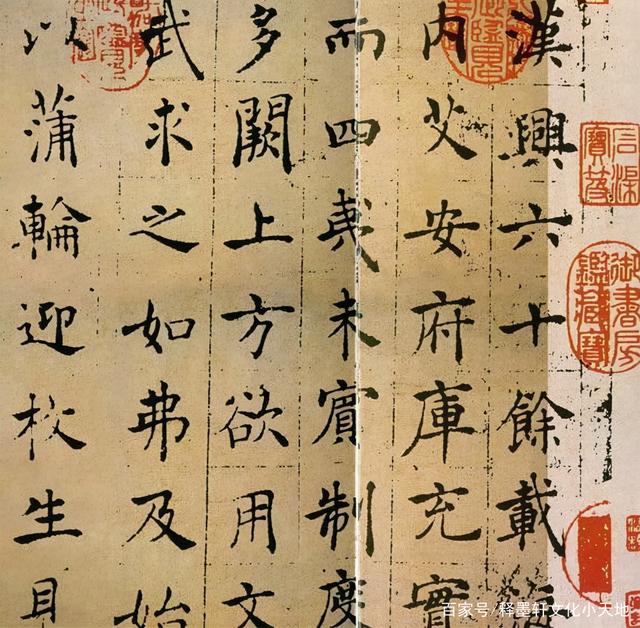 石渠寶笈
御書房鑑藏寶
漢興六十餘載海
內艾安府庫充實
而四夷未賓制度
多闕上方欲用文
武求之如弗及始
以蒲輪迎枚生見
百家号/释墨轩文化小天地